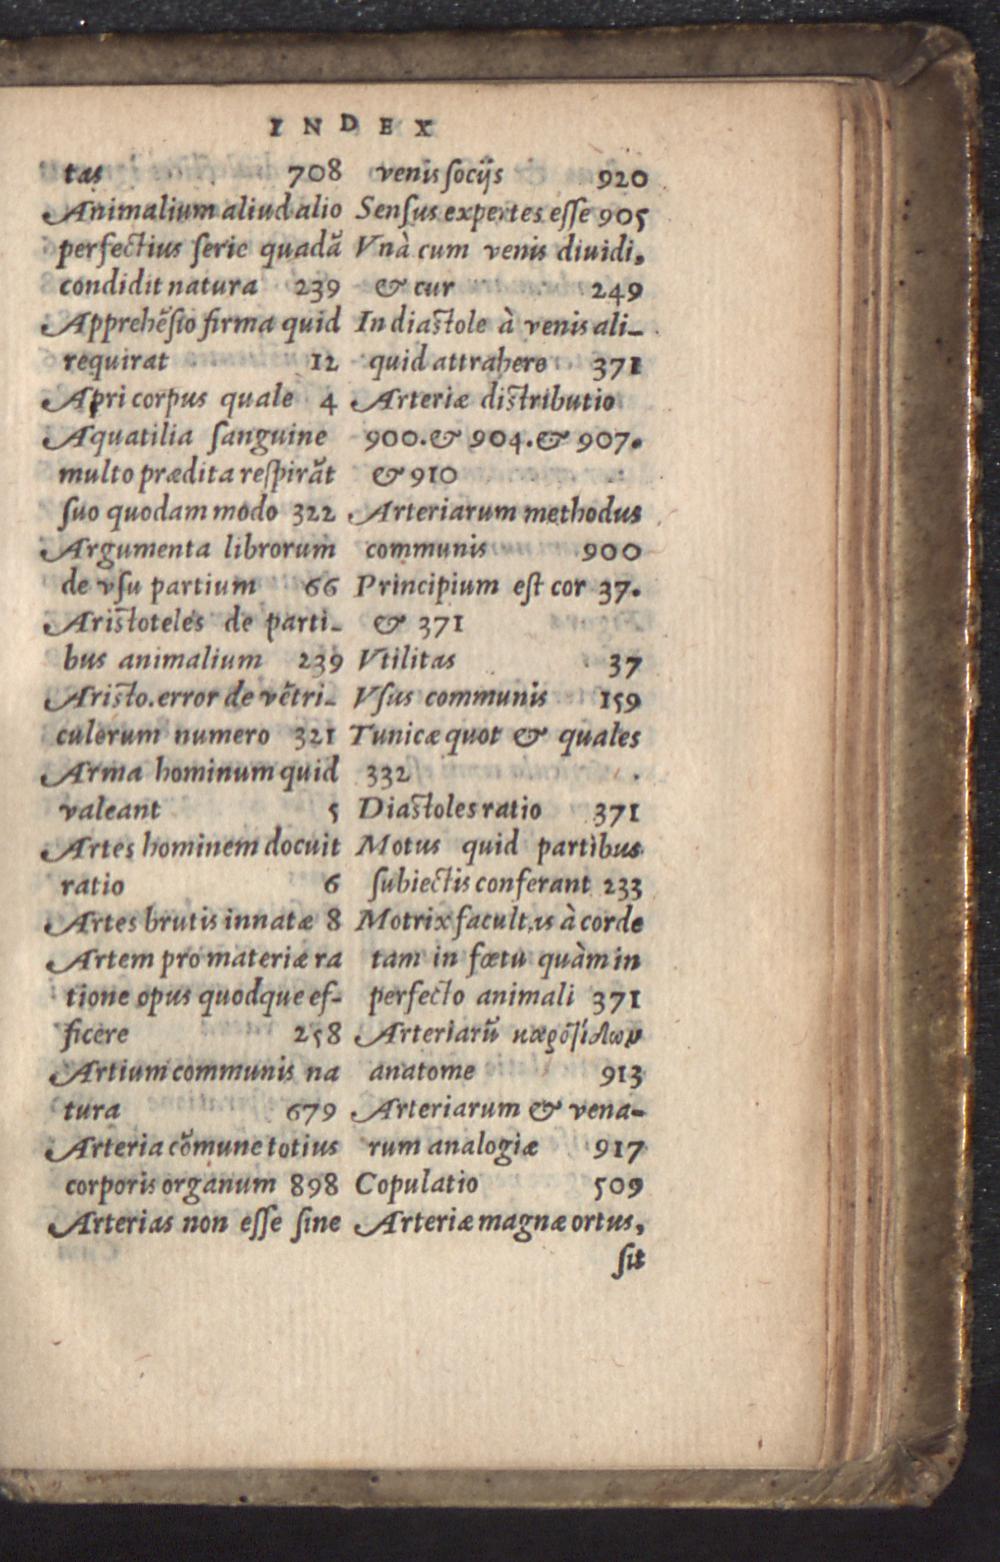 INDEX
tas 708
Animalium aliud alio
perfectius serie quadā
condidit natura 239
Apprehēsio firma quid
requirat 12
Apri corpus quale 4
Aquatilia sanguine
multo prædita respirāt
suo quodam modo 322
Argumenta librorum
de vsu partium 66
Aristoteles de parti-
bus animalium 239
Aristo. error de vētri-
culorum numero 321
Arma hominum quid
valeant 5
Artes hominem docuit
ratio 6
Artes brutis innatæ 8
Artem pro materiæ ra
tione opus quodque ef-
ficere 258
Artium communis na
tura 679
Arteria cōmune totius
corporis organum 898
Arterias non esse sine
venis socijs 920
Sensus expertes esse 905
Vnà cum venis diuidi,
& cur 249
In diastole à venis ali-
quid attrahere 371
Arteriæ distributio
900. & 904. & 907.
& 910
Arteriarum methodus
communis 900
Principium est cor 37.
& 371
Vtilitas 37
Vsus communis 159
Tunicæ quot & quales
332
Diastoles ratio 371
Motus quid partibus
subiectis conferant 233
Motrix facultas à corde
tam in fœtu quàm in
perfecto animali 371
Arteriarū καρωτίδων
anatome 913
Arteriarum & vena-
rum analogiæ 917
Copulatio 509
Arteriæ magnæ ortus,
sit